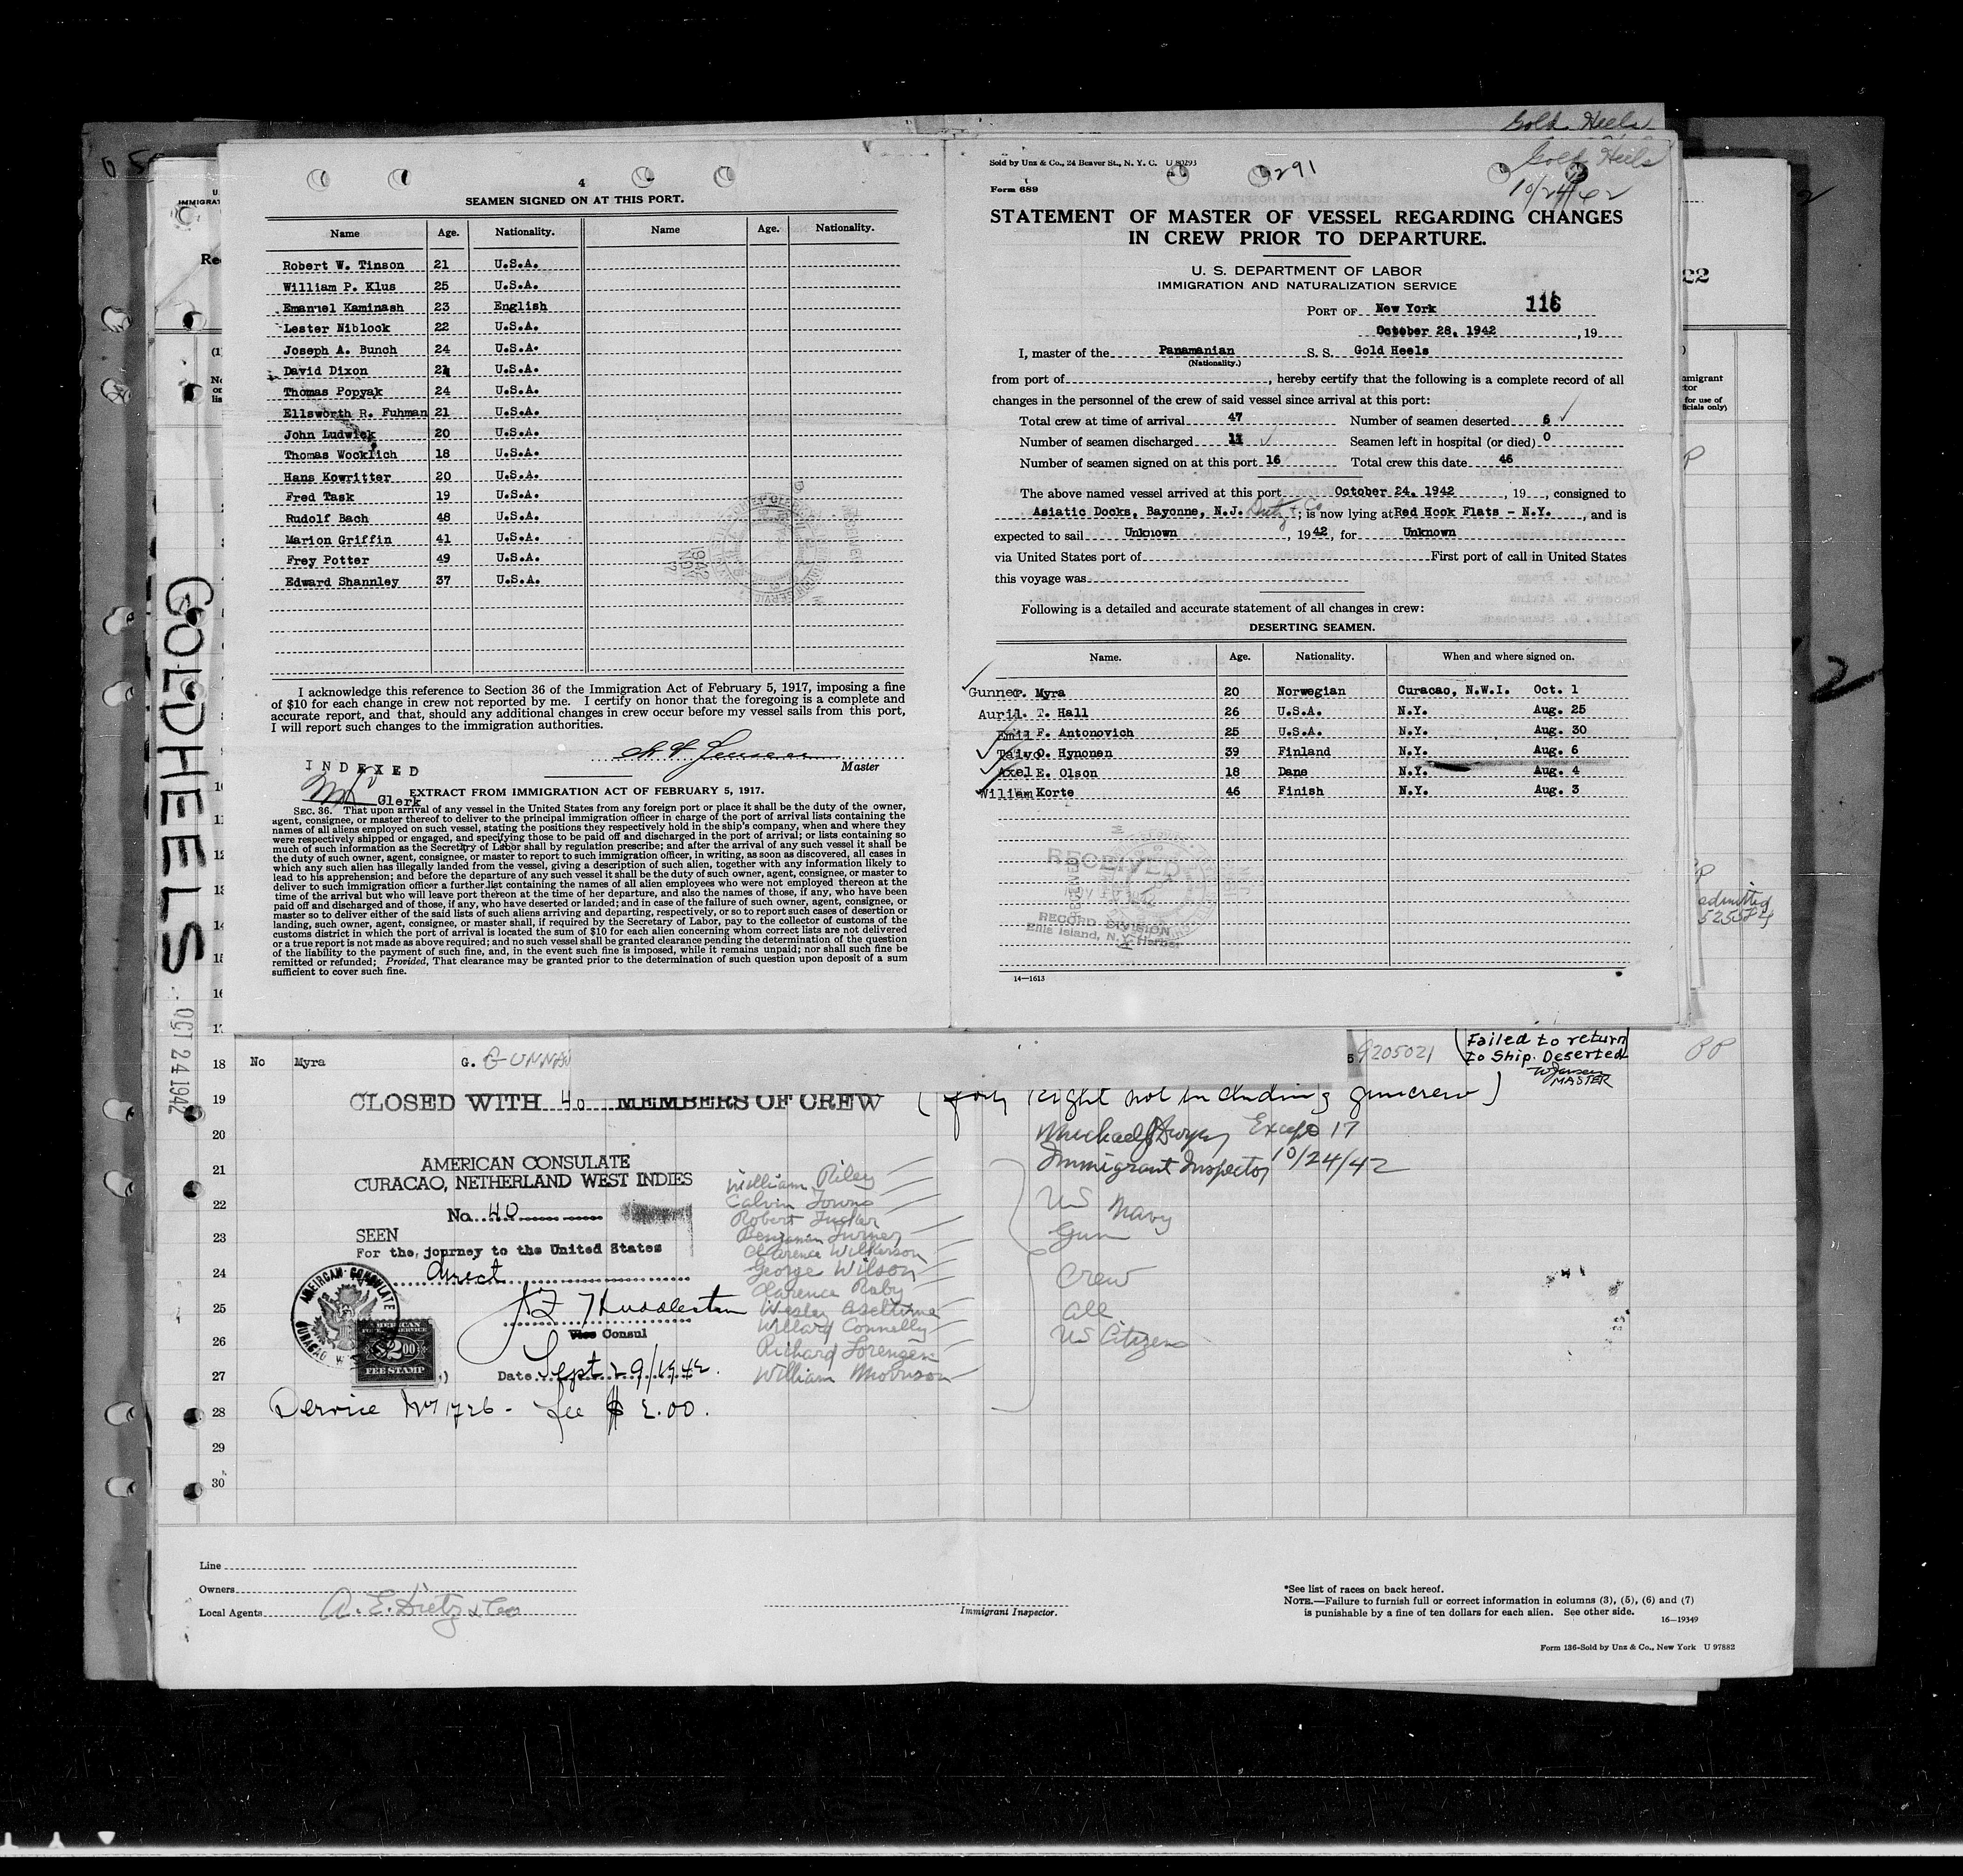 Gold Heels
4
SEAMEN SIGNED ON AT THIS PORT.
Name Age. Nationality. Name Age. Nationality.
Robert W. Tinson 21 U.S.A.
William P. Klus 25 U.S.A.
Emanuel Kaminash 23 English
Lester Niblock 22 U.S.A.
Joseph A. Bunch 24 U.S.A.
David Dixon 21 U.S.A.
Thomas Popyak 24 U.S.A.
Ellsworth R. Fuhman 21 U.S.A.
John Ludwick 20 U.S.A.
Thomas Wocklich 18 U.S.A.
Hans Kowritter 20 U.S.A.
Fred Task 19 U.S.A.
Rudolf Bach 48 U.S.A.
Marion Griffin 41 U.S.A.
Frey Potter 49 U.S.A.
Edward Shannley 37 U.S.A.
I acknowledge this reference to Section 36 of the Immigration Act of February 5, 1917, imposing a fine
of $10 for each change in crew not reported by me. I certify on honor that the foregoing is a complete and
accurate report, and that, should any additional changes in crew occur before my vessel sails from this port,
I will report such changes to the immigration authorities.
Master
INDEXED
Clerk
EXTRACT FROM IMMIGRATION ACT OF FEBRUARY 5, 1917.
SEC. 36. That upon arrival of any vessel in the United States from any foreign port or place it shall be the duty of the owner,
agent, consignee, or master thereof to deliver to the principal immigration officer in charge of the port of arrival lists containing the
names of all aliens employed on such vessel, stating the positions they respectively hold in the ship's company, when and where they
were respectively shipped or engaged, and specifying those to be paid off and discharged in the port of arrival; or lists containing so
much of such information as the Secretary of Labor shall by regulation prescribe; and after the arrival of any such vessel it shall be
the duty of such owner, agent, consignee, or master to report to such immigration officer, in writing, as soon as discovered, all cases in
which any such alien has illegally landed from the vessel, giving a description of such alien, together with any information likely to
lead to his apprehension; and before the departure of any such vessel it shall be the duty of such owner, agent, consignee, or master to
deliver to such immigration officer a further list containing the names of all alien employees who were not employed thereon at the
time of the arrival but who will leave port thereon at the time of her departure, and also the names of those, if any, who have been
paid off and discharged and of those, if any, who have deserted or landed; and in case of the failure of such owner, agent, consignee, or
master so to deliver either of the said lists of such aliens arriving and departing, respectively, or so to report such cases of desertion or
landing, such owner, agent, consignee, or master shall, if required by the Secretary of Labor, pay to the collector of customs of the
customs district in which the port of arrival is located the sum of $10 for each alien concerning whom correct lists are not delivered
or a true report is not made as above required; and no such vessel shall be granted clearance pending the determination of the question
of the liability to the payment of such fine, and, in the event such fine is imposed, while it remains unpaid; nor shall such fine be
remitted or refunded; Provided, That clearance may be granted prior to the determination of such question upon deposit of a sum
sufficient to cover such fine.
Sold by Unz & Co., 24 Beaver St., N. Y. C.
291
Gold Heels
10/24/42
Form 689
STATEMENT OF MASTER OF VESSEL REGARDING CHANGES
IN CREW PRIOR TO DEPARTURE.
U. S. DEPARTMENT OF LABOR
IMMIGRATION AND NATURALIZATION SERVICE
PORT OF New York 116
October 28, 1942, 19
I, master of the Panamanian S. S. Gold Heels
(Nationality.)
from port of, hereby certify that the following is a complete record of all
changes in the personnel of the crew of said vessel since arrival at this port:
Total crew at time of arrival 47 Number of seamen deserted 6
Number of seamen discharged 11 Seamen left in hospital (or died) 0
Number of seamen signed on at this port 16 Total crew this date 46
The above named vessel arrived at this port October 24, 1942, 19, consigned to
Asiatic Docks, Bayonne, N.J. Dietz & Co; is now lying at Red Hook Flats - N.Y., and is
expected to sail Unknown, 1942, for Unknown
via United States port of First port of call in United States
this voyage was
Following is a detailed and accurate statement of all changes in crew:
DESERTING SEAMEN.
Name. Age. Nationality. When and where signed on.
Gunner. Myra 20 Norwegian Curacao, N.W.I. Oct. 1
Auril. T. Hall 26 U.S.A. N.Y. Aug. 25
Emil F. Antonovich 25 U.S.A. N.Y. Aug. 30
Taivo O. Hynonen 39 Finland N.Y. Aug. 6
Axel E. Olson 18 Dane N.Y. Aug. 4
William Korte 46 Finish N.Y. Aug. 3
RECEIVED
RECORD DIVISION
Ellis Island, N.Y. Harbor
14—1613
GOLDHEELS
OCT 24 1942
18 No Myra G. GUNNAR 9205021 Failed to return
to Ship. Deserted
MASTER
PP
19 CLOSED WITH 40 MEMBERS OF CREW (forty eight not including guncrew)
20 Michael J Dwyer
Immigrant Inspector 10/24/42
21 AMERICAN CONSULATE
CURACAO, NETHERLAND WEST INDIES
22 No. 40
23 SEEN
For the journey to the United States
24 direct
25 Huddleston
Vice Consul
26
27 Date Sept 29/1942.
28 Service No 1726 - fee $ 2.00.
29
30
AMERICAN CONSULATE
CURACAO
AMERICAN
$2.00
FEE STAMP
William Riley
Calvin Towns
Robert Tucker
Benjamin Turner
Clarence Wilkerson
George Wilson
Clarence Raby
Wesley Aseltine
Willard Connelly
Richard Lorengen
William Morrison
US Navy
Gun
Crew
all
US Citizens
22
admitted
Line
Owners
Local Agents A. E. Dietz & Co
Immigrant Inspector.
*See list of races on back hereof.
NOTE.—Failure to furnish full or correct information in columns (3), (5), (6) and (7)
is punishable by a fine of ten dollars for each alien. See other side.
16—19349
Form 136-Sold by Unz & Co., New York U 97882